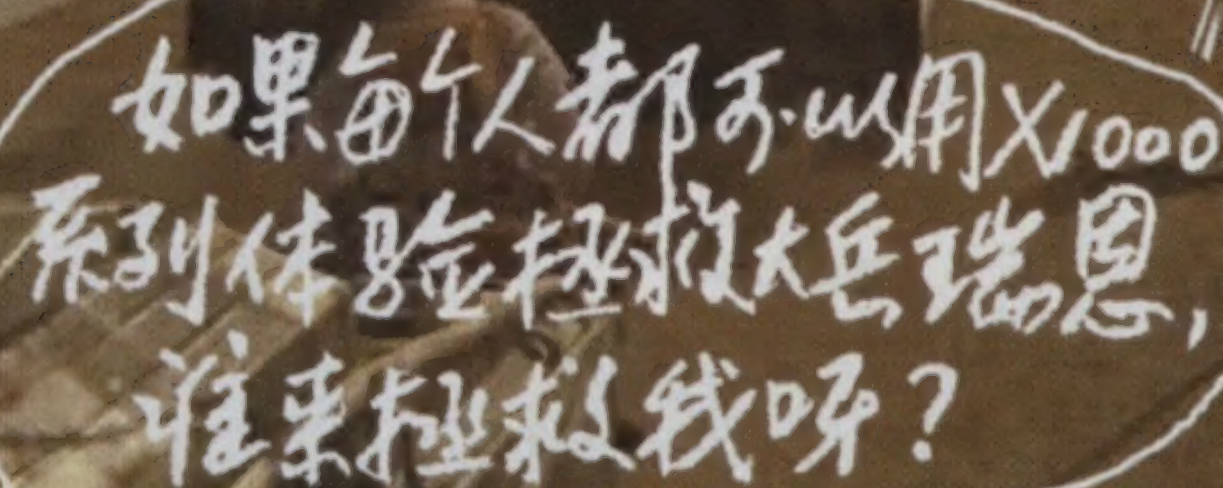 如果每个人都可以用X1000
系列体验拯救大兵瑞恩,
谁来拯救我呀?